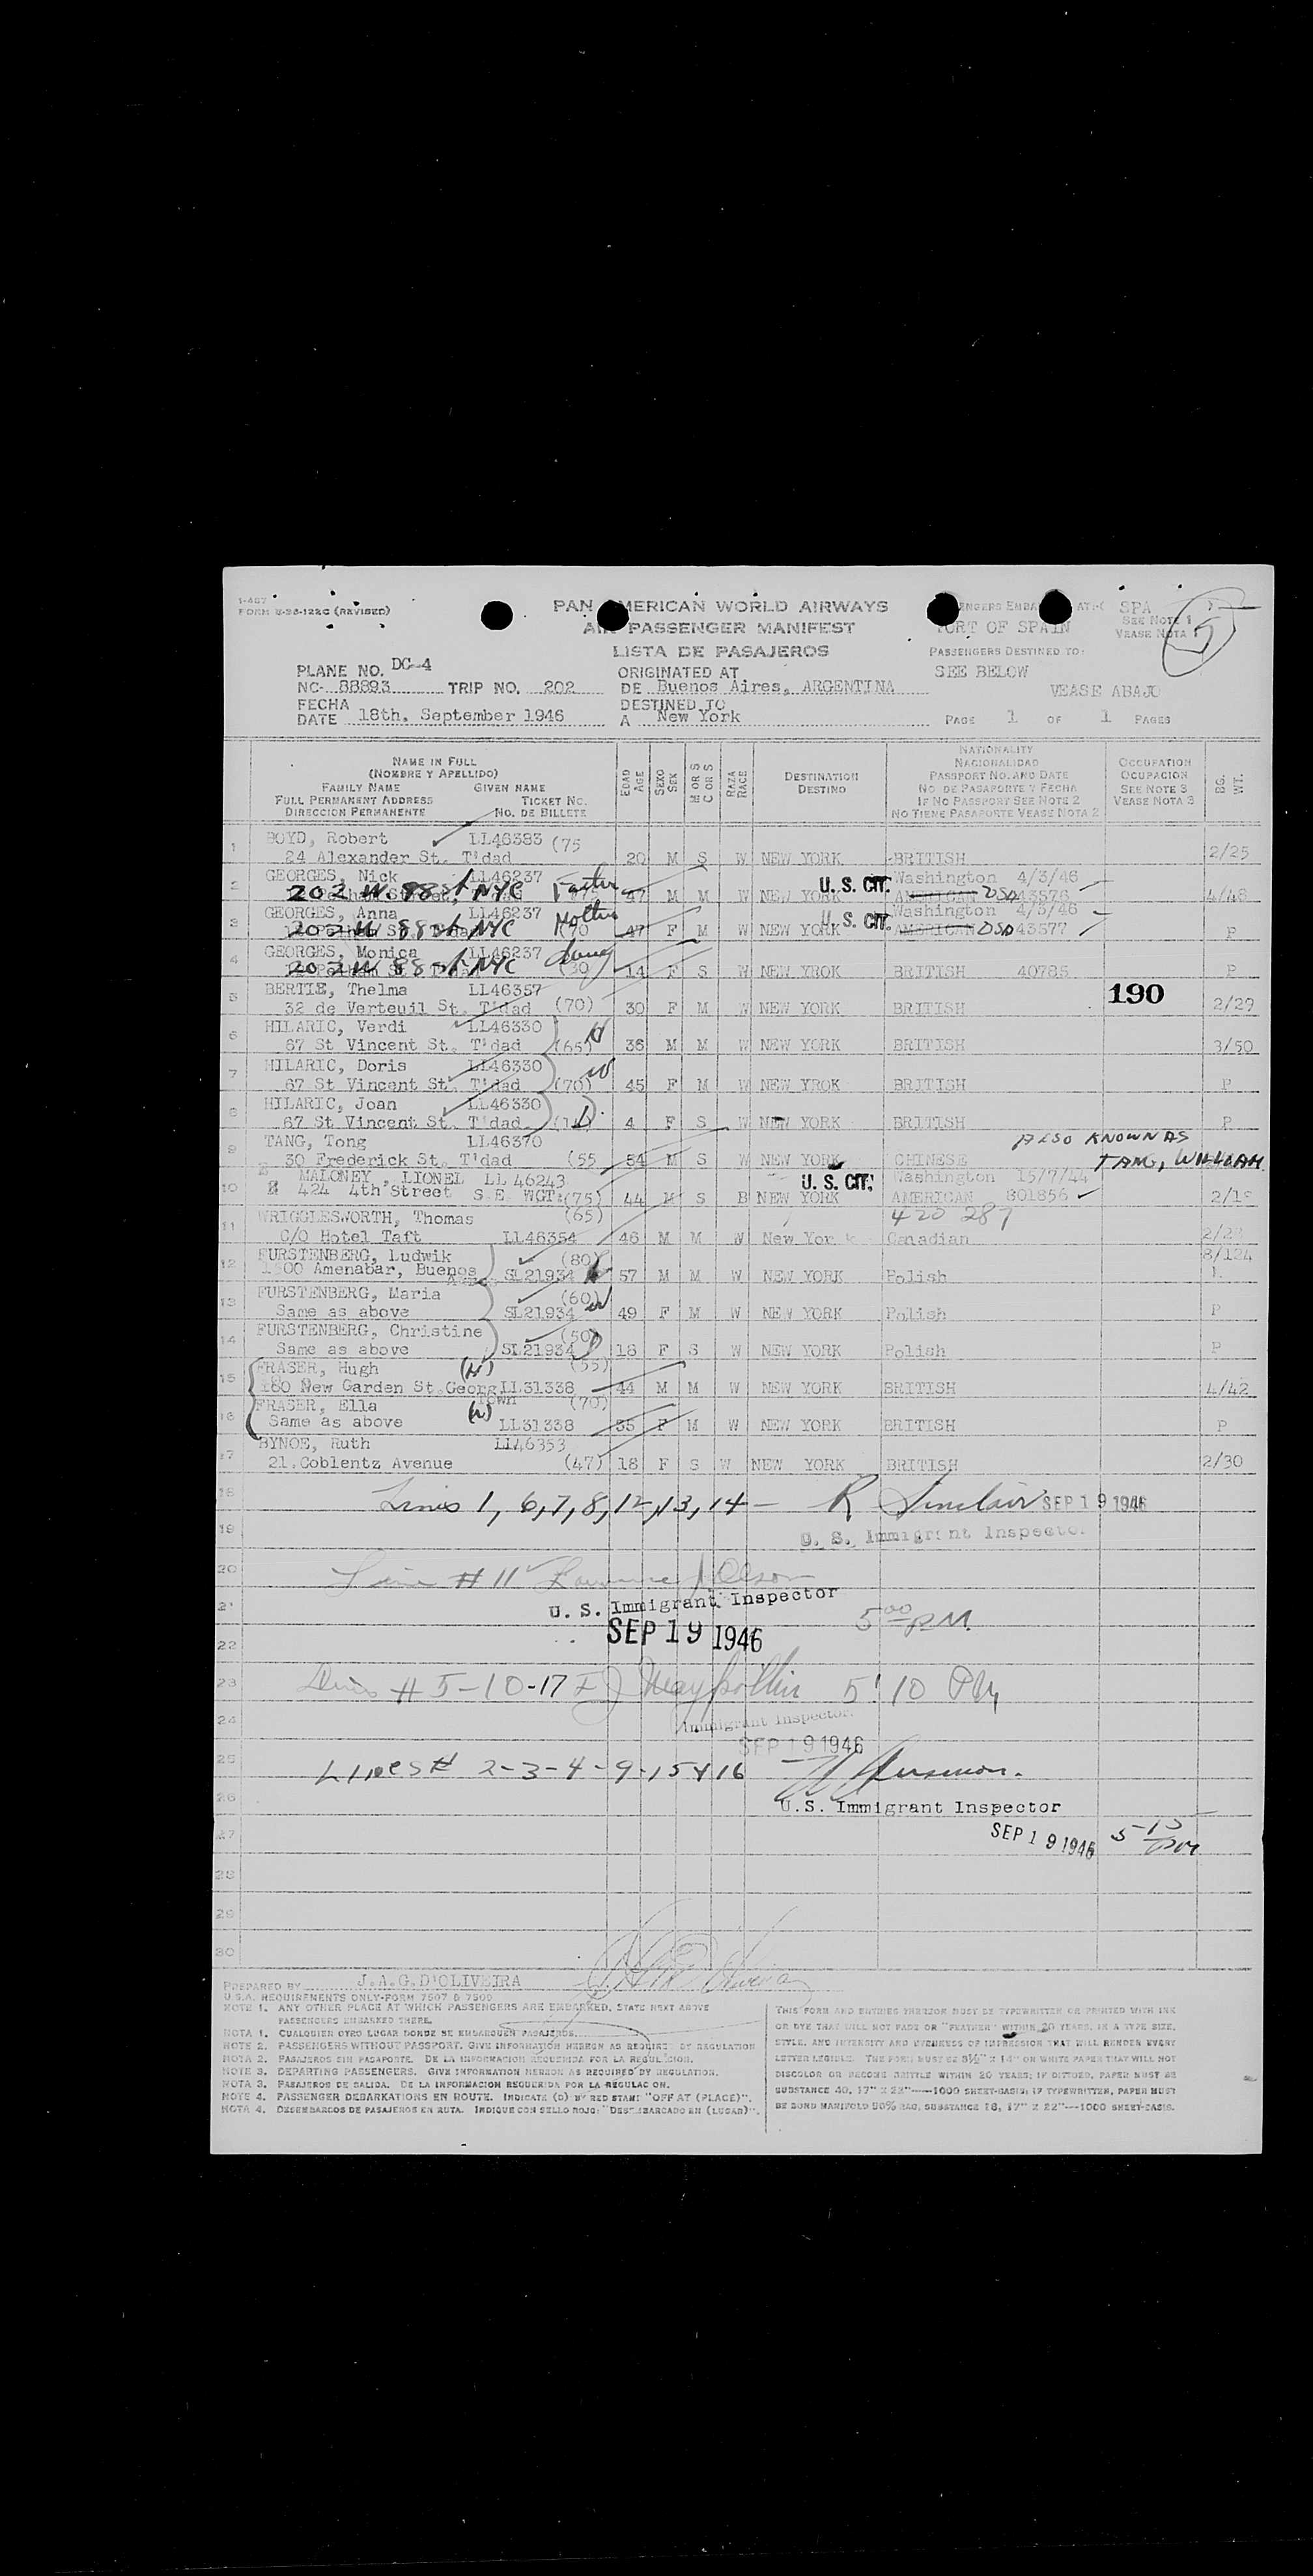 1-467
FORM E-26-122C (REVISED)
PAN AMERICAN WORLD AIRWAYS
AIR PASSENGER MANIFEST
LISTA DE PASAJEROS
SPA
SEE NOTE 1
VEASE NOTA 1
5
PORT OF SPAIN
PASSENGERS DESTINED TO:
SEE BELOW
VEASE ABAJO
PLANE NO. DC-4
NC- 88893 TRIP NO. 202
ORIGINATED AT
DE Buenos Aires, ARGENTINA
FECHA
DATE 18th. September 1946
DESTINED TO
A New York
PAGE 1 OF 1 PAGES
NAME IN FULL
(NOMBRE Y APELLIDO)
FAMILY NAME GIVEN NAME
FULL PERMANENT ADDRESS TICKET NO.
DIRECCION PERMANENTE NO. DE BILLETE
EDAD
AGE
SEXO
SEX
M OR S
C OR S
RAZA
RACE
DESTINATION
DESTINO
NATIONALITY
NACIONALIDAD
PASSPORT NO. AND DATE
NO DE PASAPORTE Y FECHA
IF NO PASSPORT SEE NOTE 2
NO TIENE PASAPORTE VEASE NOTA 2
OCCUPATION
OCUPACION
SEE NOTE 3
VEASE NOTA 3
BG.
WT.
1 BOYD, Robert LL46383 (75
24 Alexander St. T'dad 20 M S W NEW YORK BRITISH 2/25
2 GEORGES, Nick LL46237 Father U. S. CIT. Washington 4/3/46
202 W. 88 St NYC 47 M M W NEW YORK AMERICAN USA 43576 4/48
3 GEORGES, Anna LL46237 Mother U. S. CIT. Washington 4/3/46
202 W 88 St NYC (70 47 F M W NEW YORK AMERICAN USA 43577 P
4 GEORGES, Monica LL46237 Daug
202 W 88 St NYC (39 14 F S W NEW YROK BRITISH 40785 P
5 BERTIE, Thelma LL46357 190
32 de Verteuil St. T'dad (70) 30 F M W NEW YORK BRITISH 2/29
6 HILARIC, Verdi LL46330
67 St Vincent St. T'dad (65) 36 M M W NEW YORK BRITISH 3/50
7 HILARIC, Doris LL46330
67 St Vincent St. T'dad (70) 45 F M W NEW YROK BRITISH P
8 HILARIC, Joan LL46330
67 St Vincent St. T'dad 4 F S W NEW YORK BRITISH P
9 TANG, Tong LL46370 ALSO KNOWN AS
30 Frederick St. T'dad (55 34 M S W NEW YORK CHINESE TANG, WILLIAM
10 MALONEY, LIONEL LL 46243 U. S. CIT. Washington 15/7/44
424 4th Street S.E. WGT. (75) 44 M S B NEW YORK AMERICAN 301856
11 WRIGGLESWORTH, Thomas (65) 420 287
C/O Hotel Taft LL46354 46 M M W New York Canadian
12 FURSTENBERG, Ludwik (80) 8/124
1500 Amenabar, Buenos Aires SL21934 57 M M W NEW YORK Polish
13 FURSTENBERG, Maria (60)
Same as above SL21934 49 F M W NEW YORK Polish P
14 FURSTENBERG, Christine (50)
Same as above SL21934 18 F S W NEW YORK Polish P
15 FRASER, Hugh (H) (55)
180 New Garden St. Georg LL31338 44 M M W NEW YORK BRITISH 4/42
16 FRASER, Ella town (W) (70)
Same as above LL31338 35 F M W NEW YORK BRITISH P
17 BYNOE, Ruth LL46353
21. Coblentz Avenue (47) 18 F S W NEW YORK BRITISH 2/30
18 Lines 1, 6, 7, 8, 12, 13, 14 - R Sinclair SEP 19 1946
19 U. S. Immigrant Inspector
20 Line # 11 Olson
21 U. S. Immigrant Inspector 5 00 PM.
22 SEP 19 1946
23 Lines # 5-10-17 5:10 PM
24 Immigrant Inspector
SEP 19 1946
25 Lines # 2-3-4-9-15 & 16
26 U.S. Immigrant Inspector
27 SEP 19 1946 5-15 PM
28
29
30
PREPARED BY J.A.G. D'OLIVEIRA
U.S.A. REQUIREMENTS ONLY-FORM 7507 & 7509
NOTE 1. ANY OTHER PLACE AT WHICH PASSENGERS ARE EMBARKED, STATE NEXT ABOVE
PASSENGERS EMBARKED THERE.
NOTA 1. CUALQUIER OTRO LUGAR DONDE SE EMBARQUEN PASAJEROS.
NOTE 2. PASSENGERS WITHOUT PASSPORT. GIVE INFORMATION HEREON AS REQUIRED BY REGULATION
NOTA 2. PASAJEROS SIN PASAPORTE. DE LA INFORMACION REQUERIDA POR LA REGULACION.
NOTE 3. DEPARTING PASSENGERS. GIVE INFORMATION HEREON AS REQUIRED BY REGULATION.
NOTA 3. PASAJEROS DE SALIDA. DE LA INFORMACION REQUERIDA POR LA REGULACION.
NOTE 4. PASSENGER DEBARKATIONS EN ROUTE. INDICATE (D) BY RED STAMP "OFF AT (PLACE)".
NOTA 4. DESEMBARCOS DE PASAJEROS EN RUTA. INDIQUE CON SELLO ROJO: "DESEMBARCADO EN (LUGAR)".
THIS FORM AND ENTRIES THEREON MUST BE TYPEWRITTEN OR PRINTED WITH INK
OR DYE THAT WILL NOT FADE OR "FEATHER" WITHIN 20 YEARS, IN A TYPE SIZE,
STYLE, AND INTENSITY AND EVENNESS OF IMPRESSION THAT WILL RENDER EVERY
LETTER LEGIBLE. THE FORM MUST BE 8½" X 14" ON WHITE PAPER THAT WILL NOT
DISCOLOR OR BECOME BRITTLE WITHIN 20 YEARS; IF DITTOED, PAPER MUST BE
SUBSTANCE 40, 17" X 22"----1000 SHEET-BASIS; IF TYPEWRITTEN, PAPER MUST
BE BOND MANIFOLD 50% RAG, SUBSTANCE 18, 17" X 22"---1000 SHEET-BASIS.